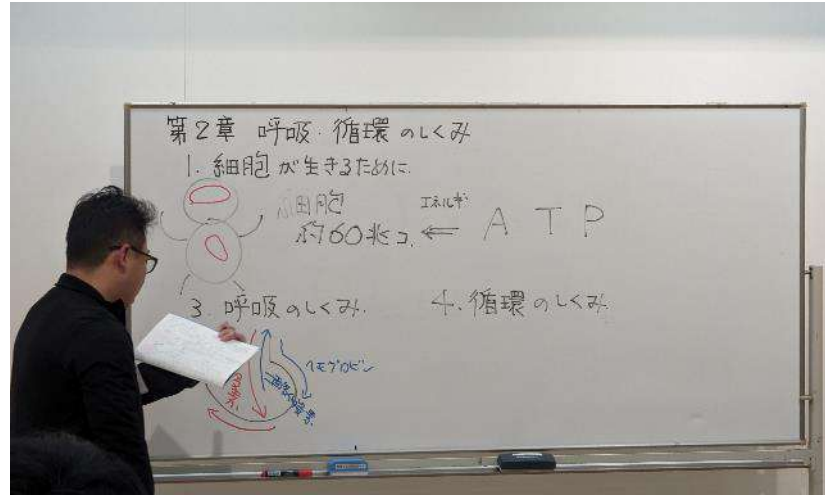 第2章 呼吸・循環のしくみ
1. 細胞が生きるために.
細胞
約60兆コ. ⇐ エネルギー ATP
3. 呼吸のしくみ.
4. 循環のしくみ
ヘモグロビン
二酸化炭素